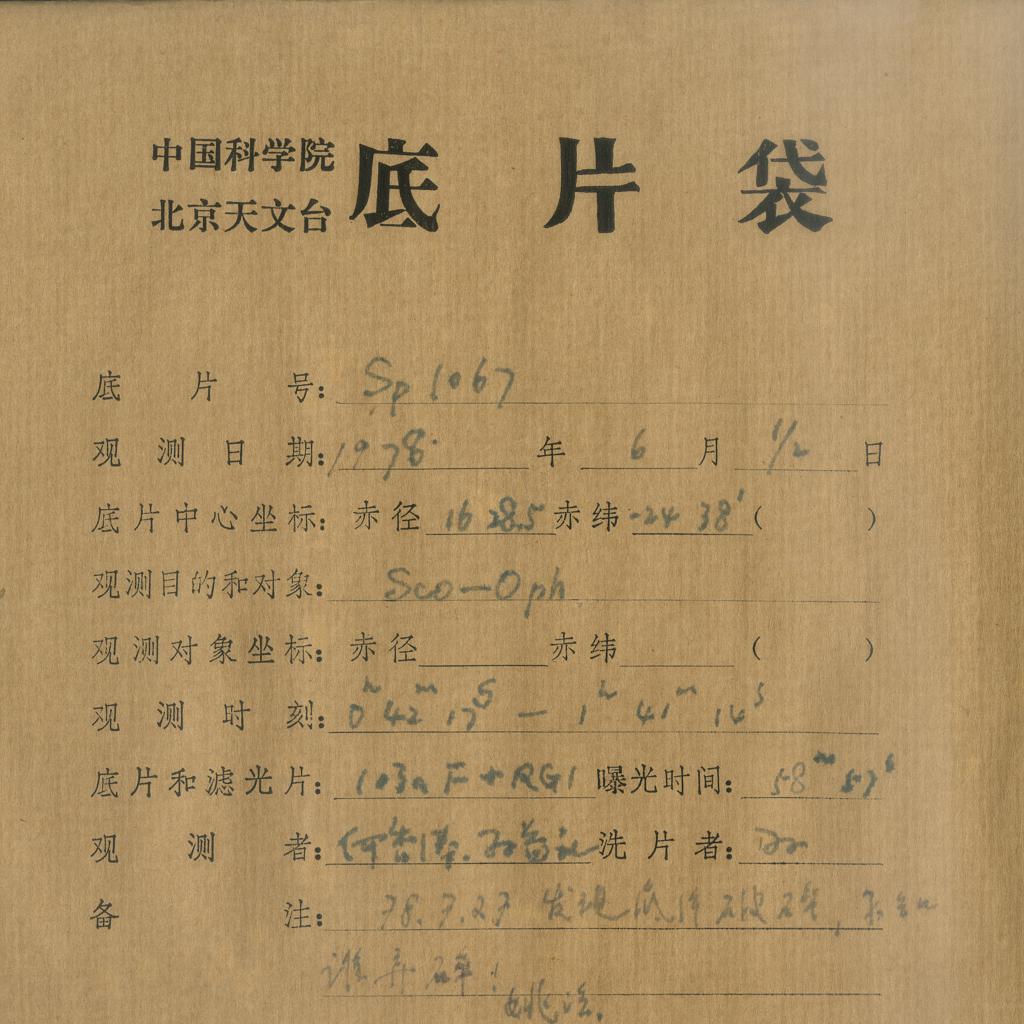 中国科学院
北京天文台
底片袋
底片号: Sp 1067
观测日期: 1978 年 6 月 1/2 日
底片中心坐标: 赤径 16 28.5 赤纬 -24 38' ( )
观测目的和对象: Sco—Oph
观测对象坐标: 赤径 赤纬 ( )
观测时刻: 0h 42m 17s — 1h 41m 14s
底片和滤光片: 103a F + RG1 曝光时间: 58m 57s
观测者: 何香涛. 洗片者:
备注: 78.7.27 发现底片破碎, 不知
谁弄碎!